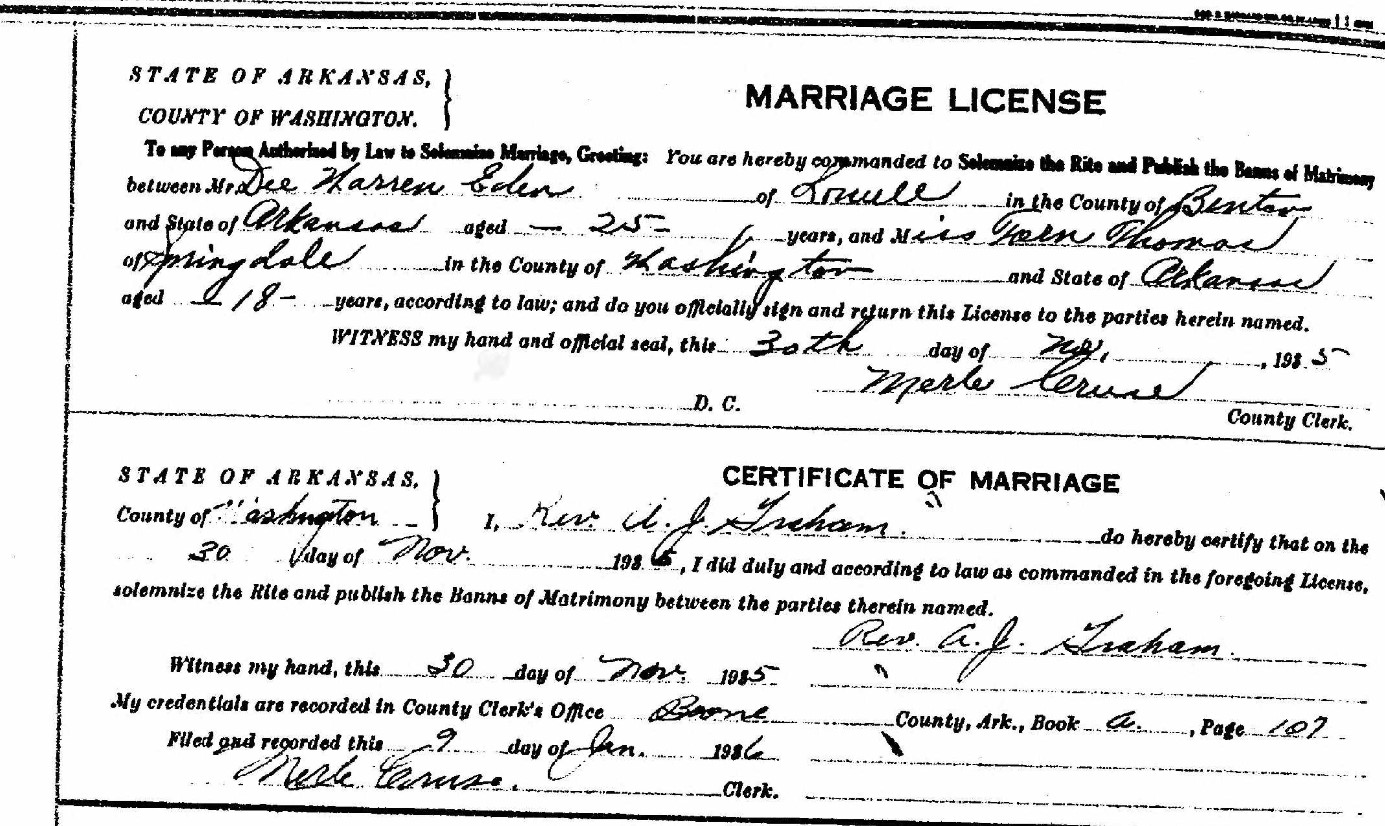 STATE OF ARKANSAS,
COUNTY OF WASHINGTON.
MARRIAGE LICENSE
To any Person Authorized by Law to Solemnize Marriage, Greeting: You are hereby commanded to Solemnize the Rite and Publish the Banns of Matrimony
between Mr. Dee Warren Eden of Lowell in the County of Benton
and State of Arkansas aged — 25 - years, and Miss Fern Thomas
of Springdale in the County of Washington and State of Arkansas
aged - 18 - years, according to law; and do you officially sign and return this License to the parties herein named.
WITNESS my hand and official seal, this 30th day of Nov. , 1935
Merle Cruse
D. C. County Clerk.
STATE OF ARKANSAS,
CERTIFICATE OF MARRIAGE
County of Washington I, Rev. A. J. Graham. do hereby certify that on the
30 day of Nov. 1935, I did duly and according to law as commanded in the foregoing License,
solemnize the Rite and publish the Banns of Matrimony between the parties therein named.
Rev. A. J. Graham.
Witness my hand, this 30 day of Nov. 1935
My credentials are recorded in County Clerk's Office Boone County, Ark., Book A. , Page 107
Filed and recorded this 9 day of Jan. 1936
Merle Cruse. Clerk.